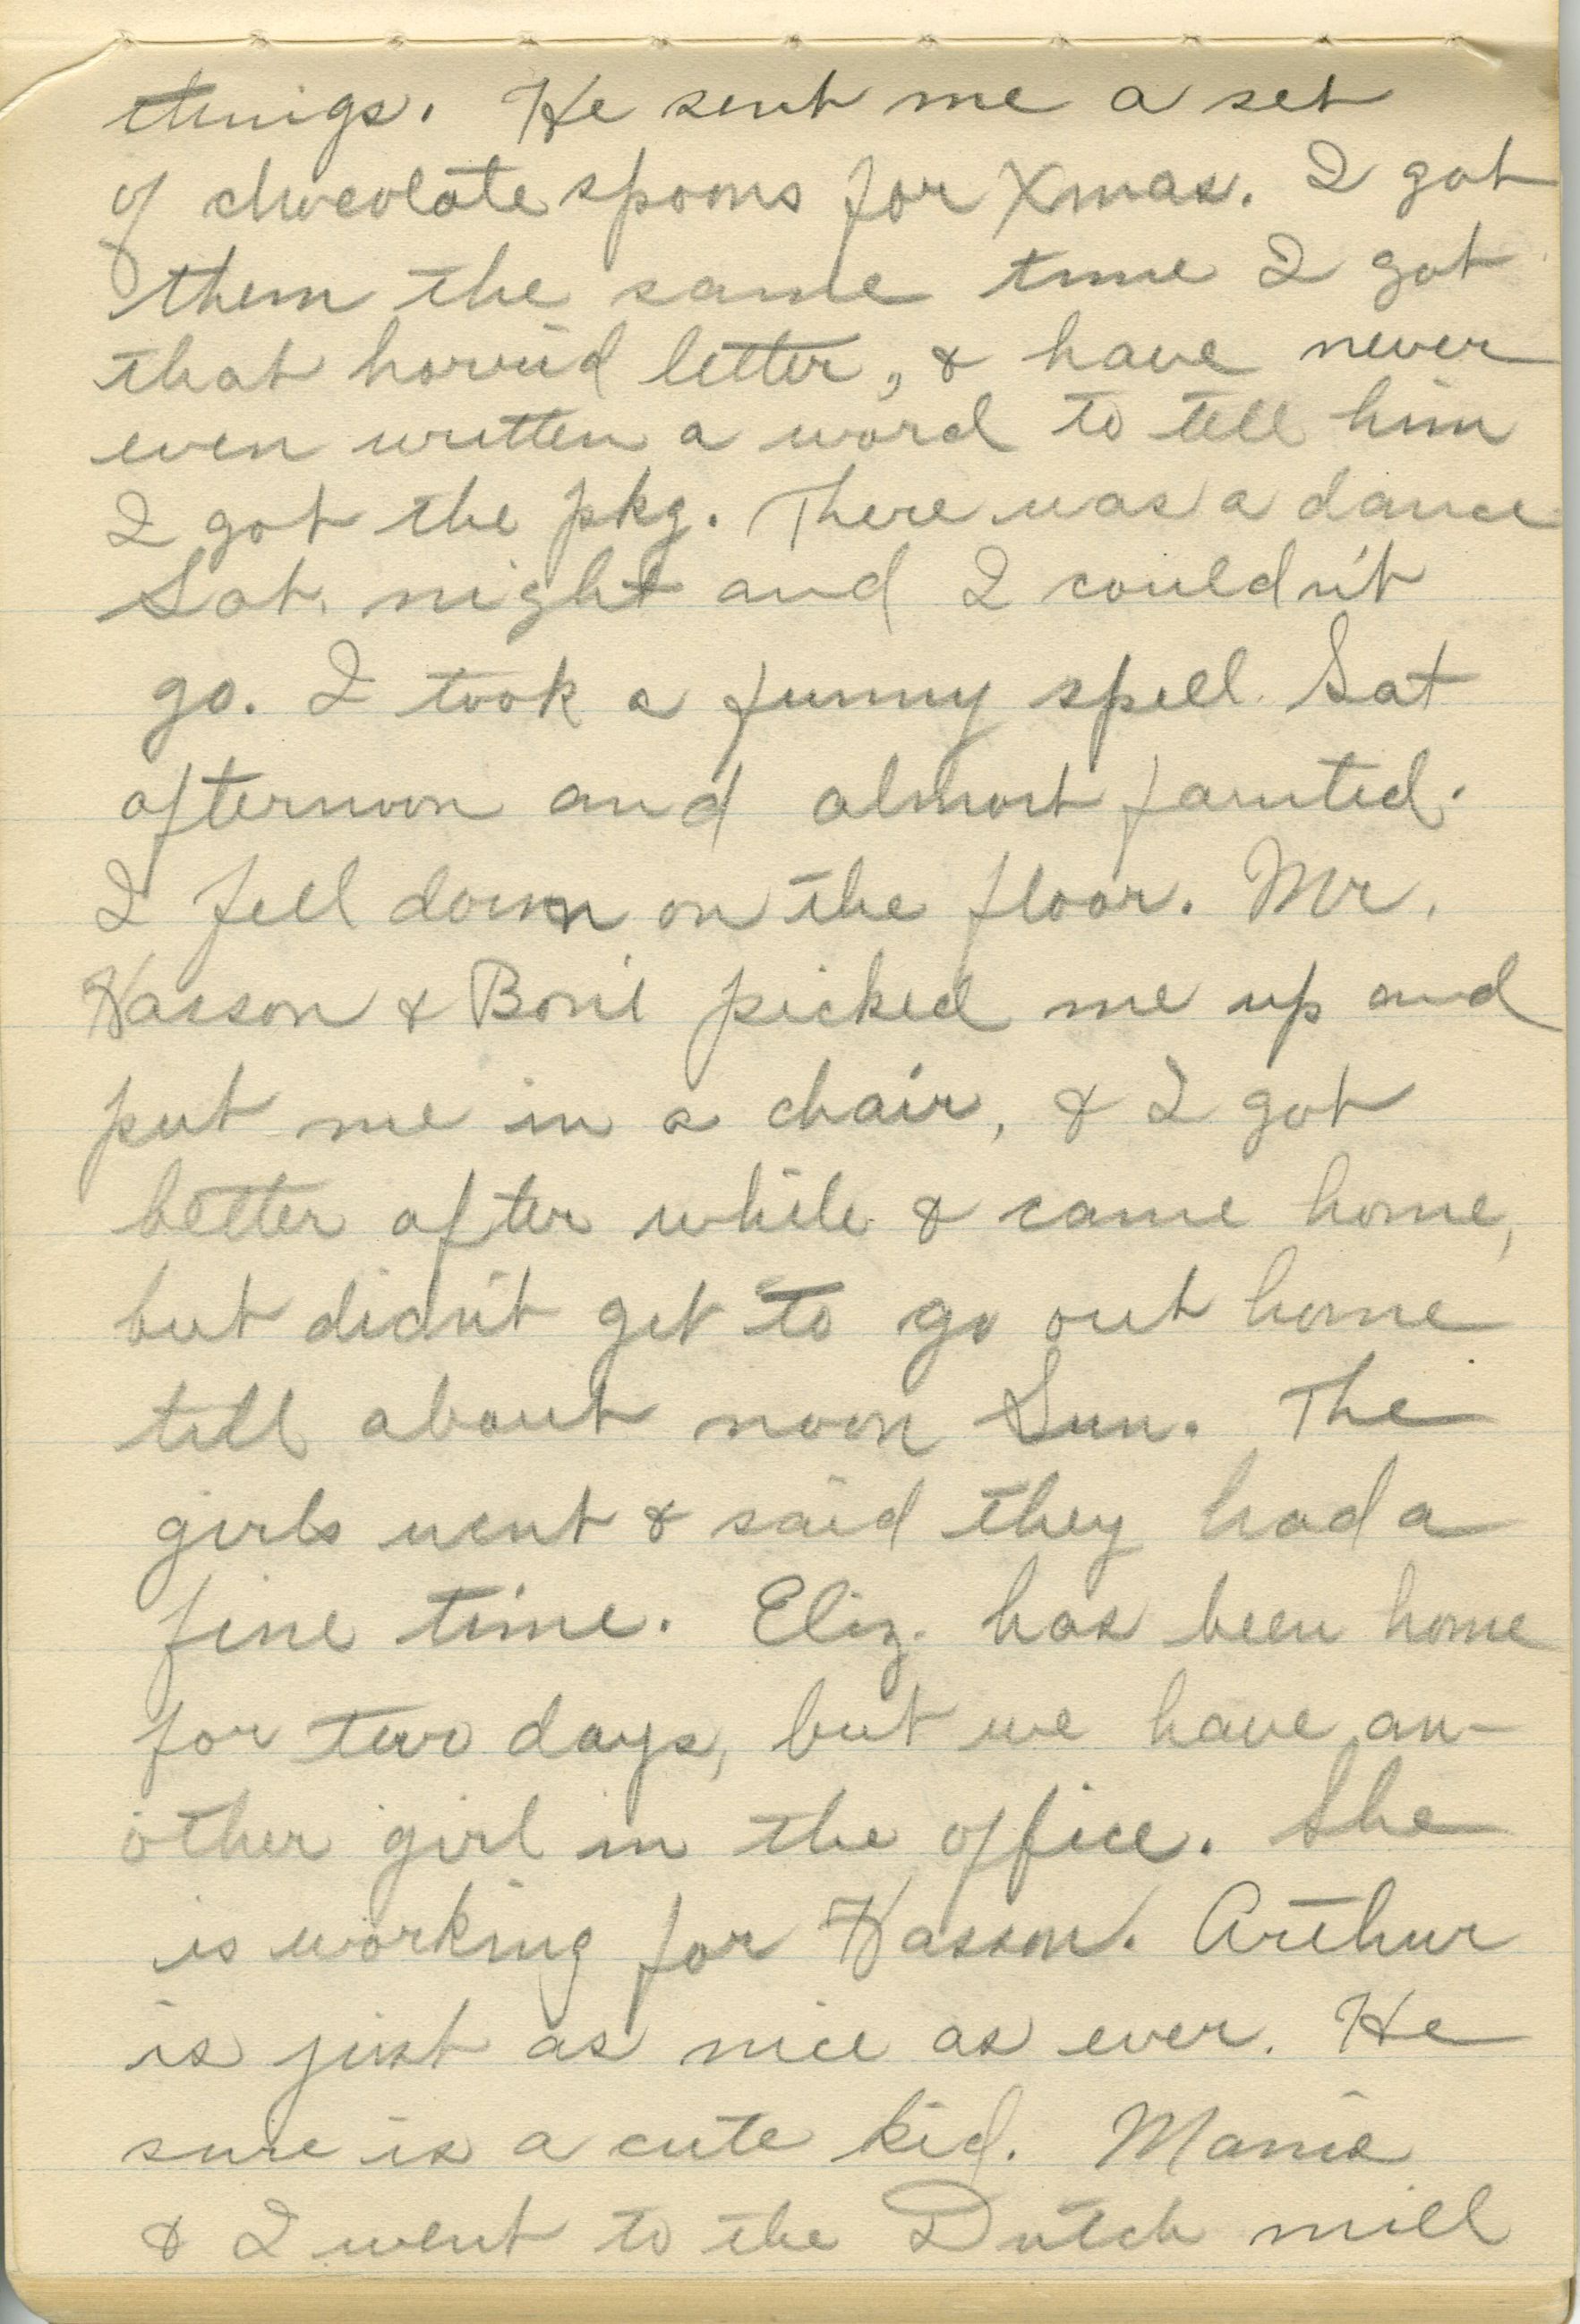 things. He sent me a set
of chocolate spoons for Xmas. I got
them the same time I got
that horrid letter, & have never
even written a word to tell him
I got the pkg. There was a dance
Sat. night and I couldn't
go. I took a funny spell Sat
afternoon and almost fainted.
I fell down on the floor. Mr.
Wasson & picked me up and
put me in a chair, & I got
better after while & came home,
but didn't get to go out home
till about noon Sun. The
girls went & said they had a
fine time. Eliz. has been home
for two days, but we have an-
other girl in the office. She
is working for Wasson. Arthur
is just as nice as ever. He
sure is a cute kid. Mamie
& I went to the Dutch mill